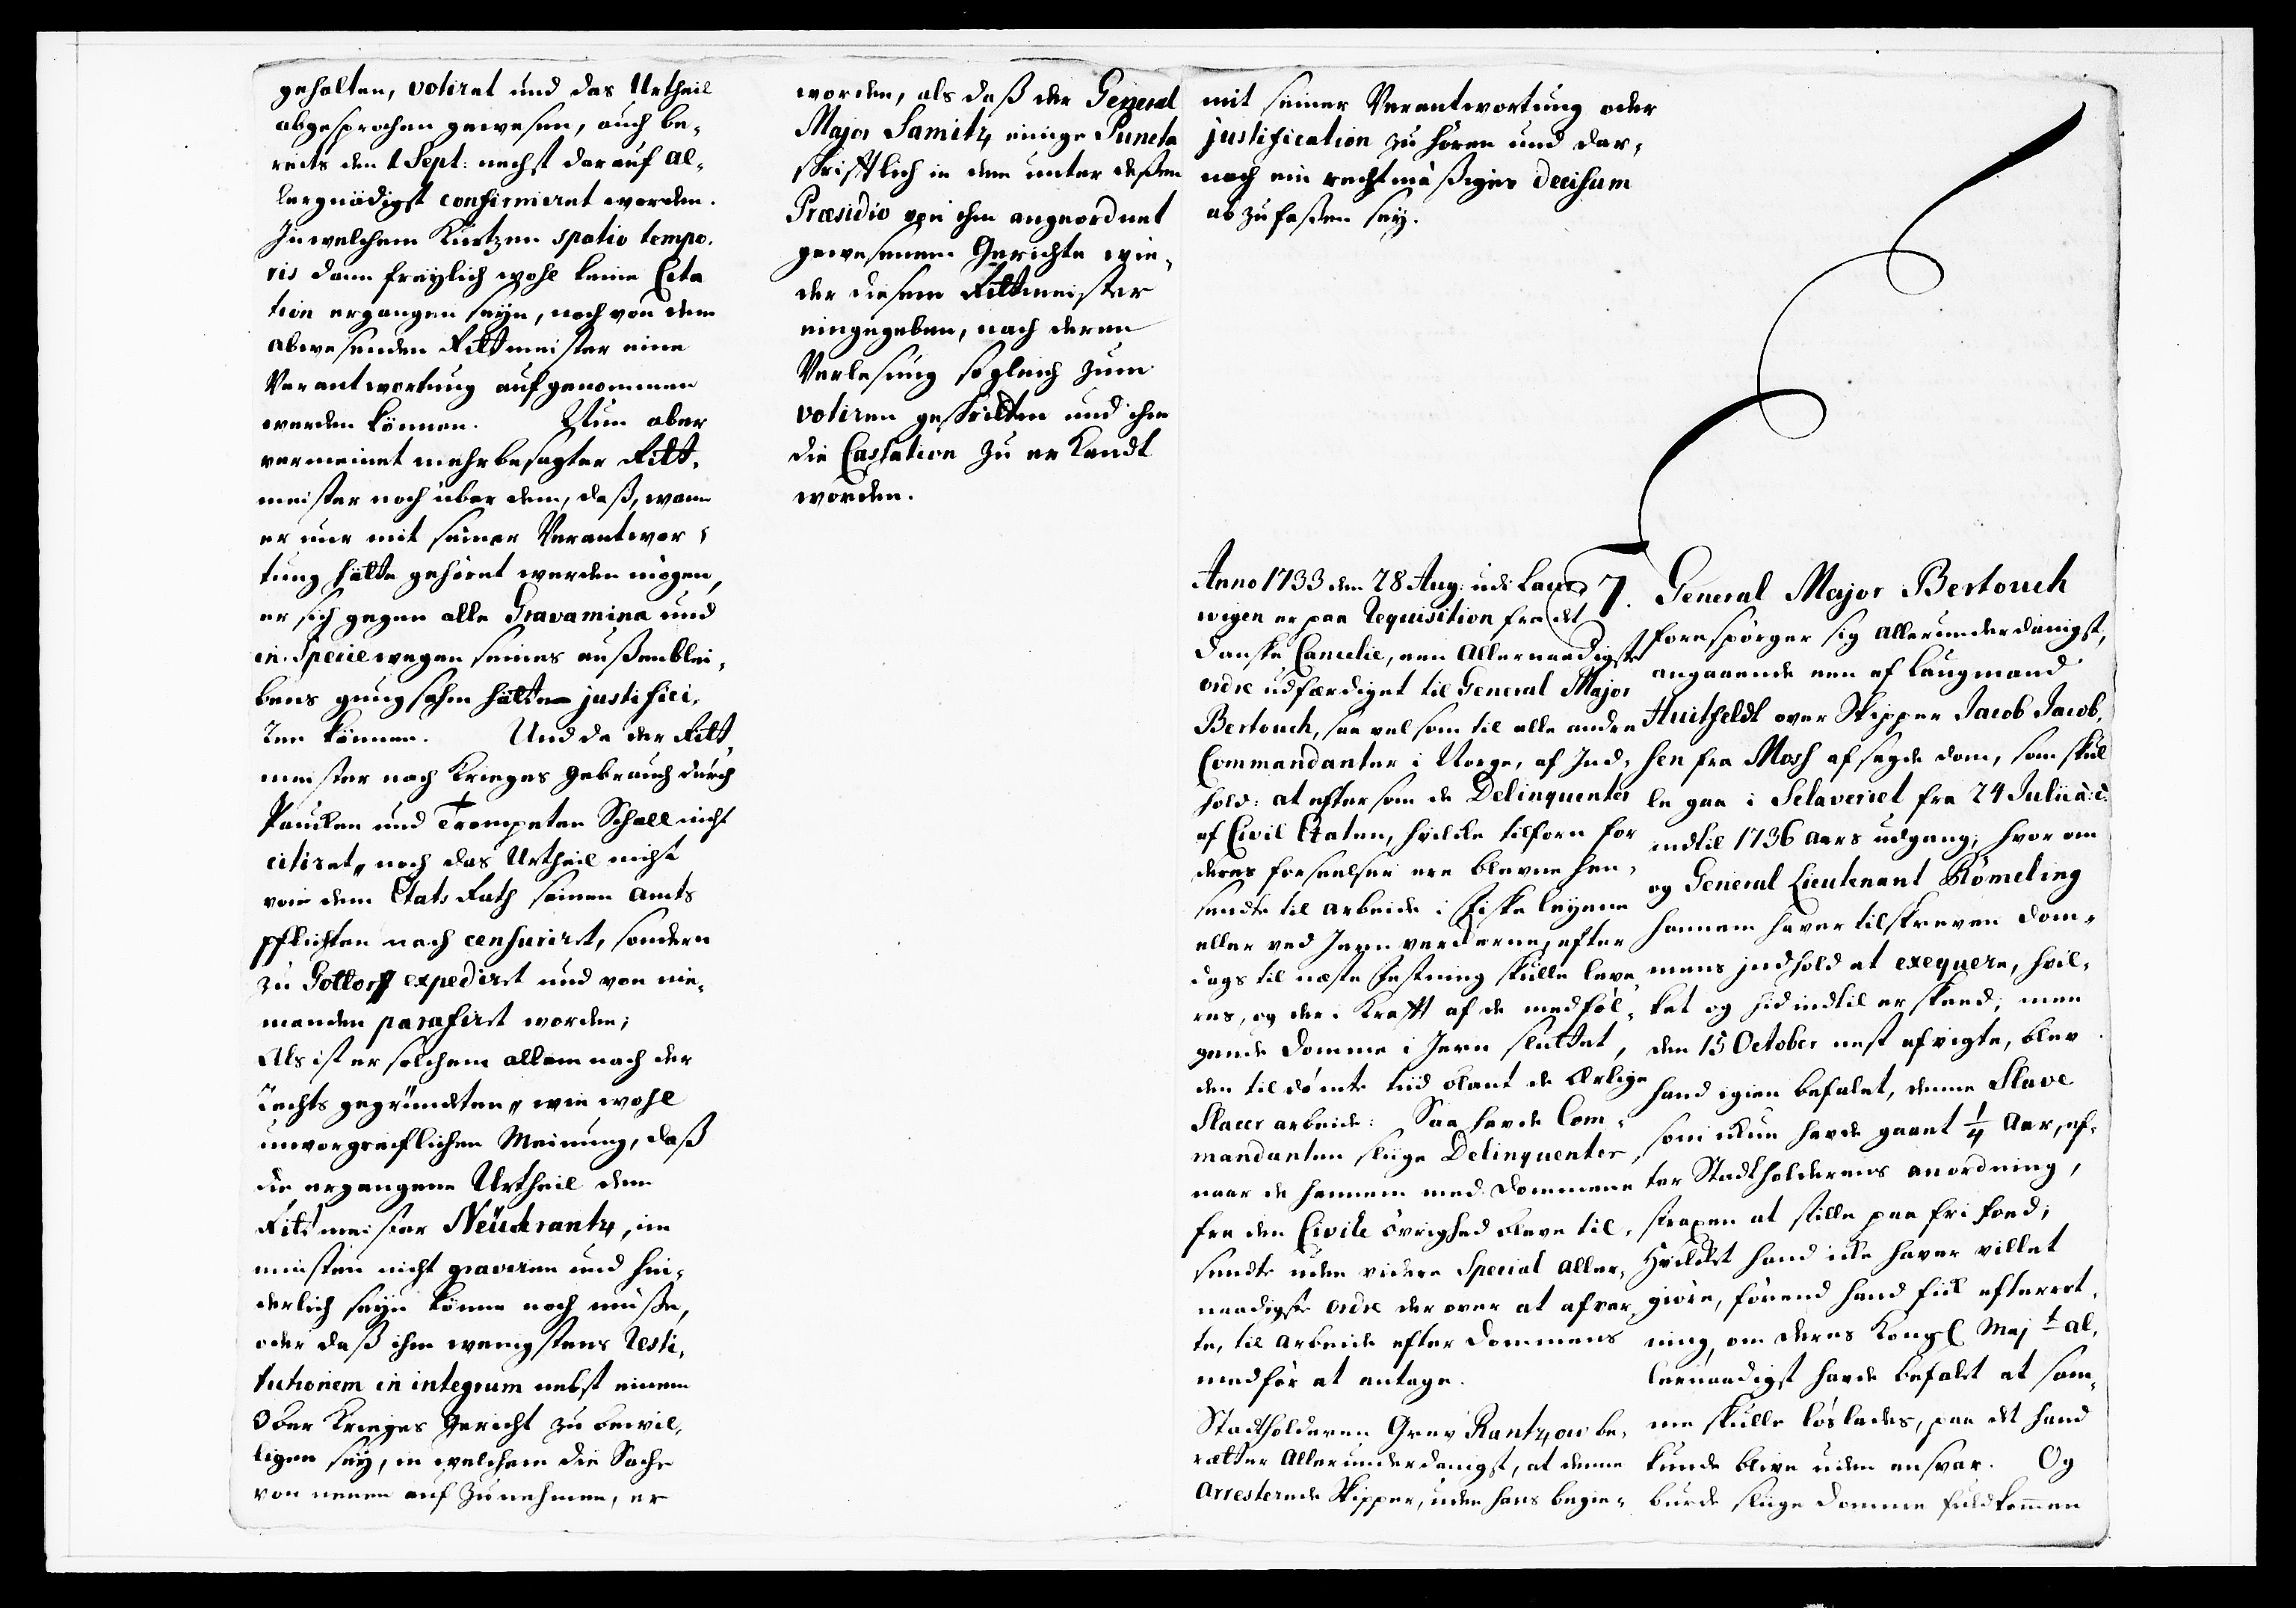 gehalten, votiret und das Urtheil
abgesprochen gewesen, auch be-
reits den 1 Sept: nechst darauf al-
lergnädigst confirmiret worden.
In welchem Kurtzen spatio tempo-
ris dann freylich wohl keine Cita
tion ergangen seyn, noch von dem
abwesenden Rittmeister eine
Verantwortung aufgenommen
werden können. Nun aber
vermeinet mehrbesagter Ritt-
meister noch über dem, daß, wann
er nur mit seiner Verantwor-
tung hätte gehöret werden mögen,
er sich gegen alle Gravamina und
in Specie wegen seines außenblei-
bens gnugsahm hätte justifici-
ren können. Und da der Ritt-
meister nach Krieges gebrauch durch
Paucken und Trompeten Schall nicht
citiret, noch das Urtheil nicht
von dem Etats Rath seinen Amts
pflichten nach censuriret, sondern
zu Gottorff expediret und von nie-
manden parafiret worden;
Als ist er solchem allem nach der
Rechts gegründeten, wie wohl
unvorgreiflichen Meinung, daß
die ergangene Urtheil dem
Rittmeister Neükrantz, im
minsten nicht graviren und hin-
derlich seyn könne noch müße,
oder daß ihm wenigstens Resti-
tutionem in integrum nebst einem
Ober Krieges Gericht zu bewil-
ligen sey, in welchem die Sache
von neuen auf zu nehmen, er
worden, als daß der General
Major Samitz einige Puncta
schrifftlich in dem unter deßen
Præsidio von ihm angeordnet
gewesenen Gerichte wie-
der diesem Rittmeister
eingegeben, nach deren
Verlesung sogleich zum
votiren geschritten und ihm
die Cassation zu erkandt
worden.
mit seiner Verantwortung oder
justification zu hören und dar-
nach ein rechtmäßiges decisum
abzufaßen sey.
Anno 1733 den 28 Aug: udi Laur
wigen er paa Requisition fra det
Danske Cancelie, een Allernaadigste
ordre udfærdiget til General Major
Bertouch, saavel som til alle andre
Commandanter i Norge, af Ind-
hold: at eftersom de Delinquenter
af Civil Etaten, hvilcke tilforn for
deres forseelser ere blevne hen-
sendte til arbeide i Fiske leyene
eller ved Jern verckerne, efter
dags til næste Festning skulle leve-
res, og der i Krafft af de medföl-
gende Domme i Jern sluttet,
den til dömte tiid blant de Ærlige
Slaver arbeide: Saa havde Com-
mandanten slige Delinquenter,
naar de hannem med Dommene
fra den Civile övrighed bleve til-
sendte uden videre Special Aller-
naadigste ordre der over at afvar-
te, til arbeide efter Dommens
medför at antage.
Stadtholderen Grev Rantzow be-
retter Allerunderdanigst, at denne
Arresterede Skipper, uden hans begie-
7. General Major Bertouch
forespörger sig Allerunderdanigst,
angaaende een af Laugmand
Huitfeldt over Skipper Jacob Jacob-
sen fra Moss afsagde dom, som skul
le gaa i Sclaveriet fra 24 Julii a: c:
indtil 1736 Aars udgang, hvor om
og General Lieutenant Römeling
hannem haver tilskreven Dom-
mens indhold at exequere, hvil-
ket og hid indtil er skeed; men
den 15 October nest afvigte, blev
hand igien befalet, denne Slave
som ickun havde gaaet 1/4 Aar, ef-
ter Stadtholderens anordning,
straxen at stille paa fri foed;
Hvilcket hand icke haver villet
giöre, förend hand fick efterret-
ning, om deres Kongl Maj.t al-
lernaadigst havde befalet at sam-
me skulle löslades, paa det hand
kunde blive uden ansvar. Og
burde slige Domme fuldkommen